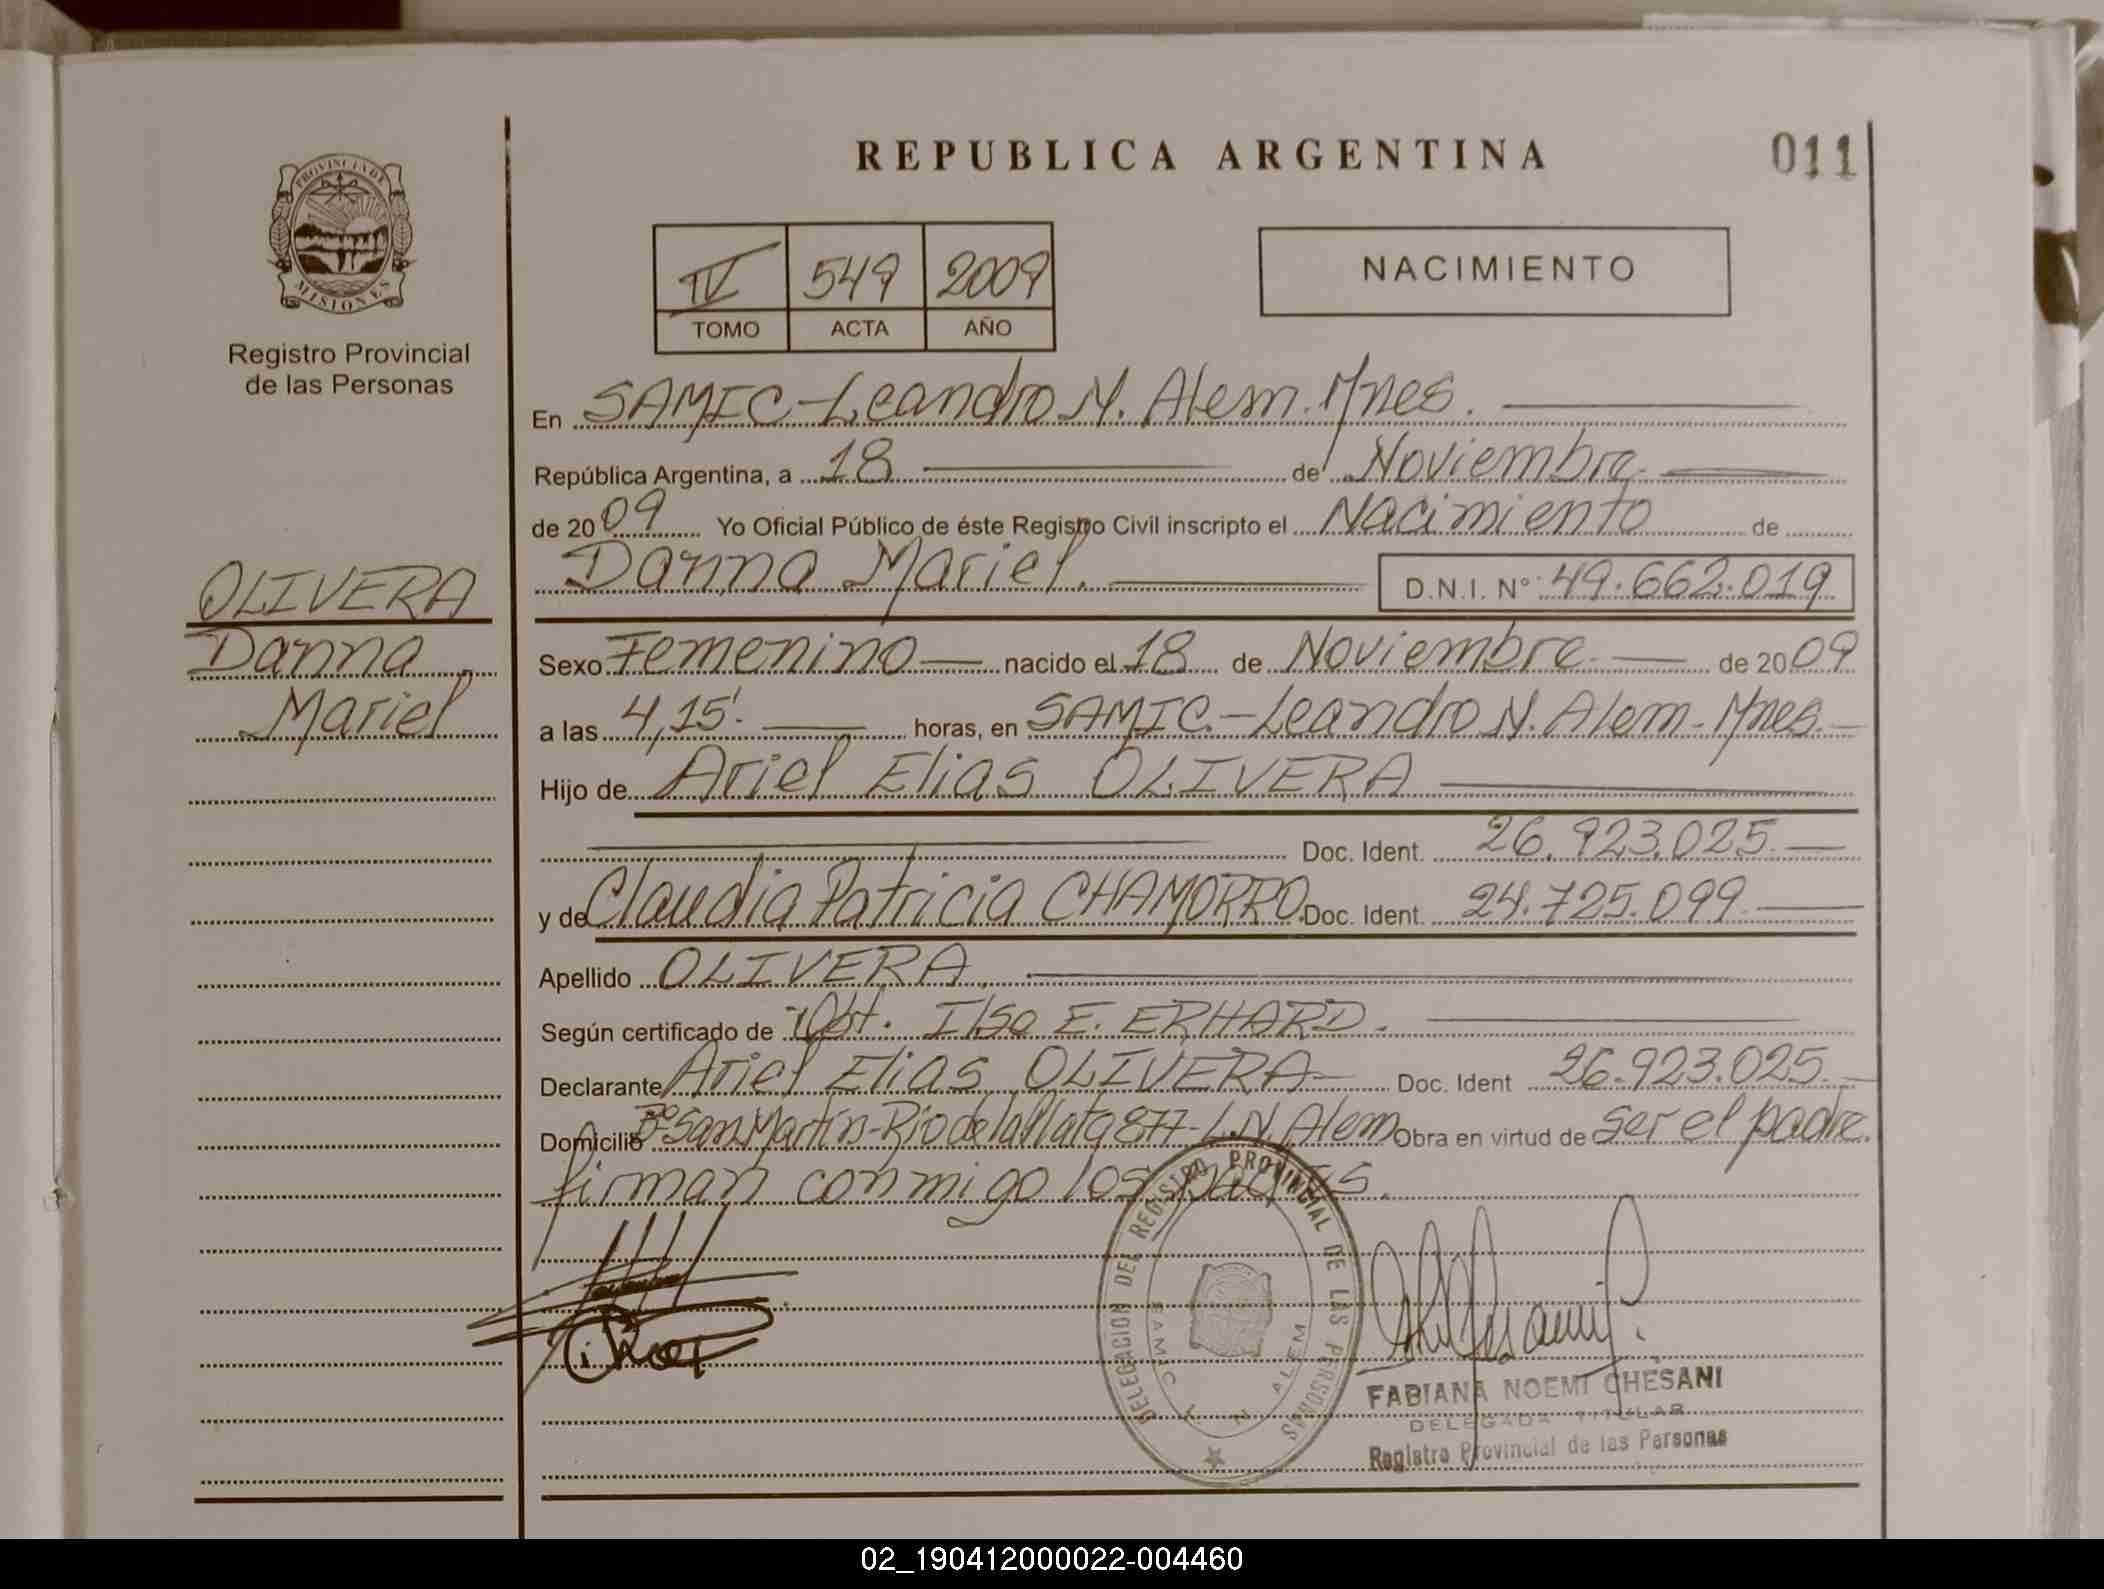 PROVINCIA DE
MISIONES
Registro Provincial
de las Personas
OLIVERA
Danna
Mariel
REPUBLICA ARGENTINA
011
IV 549 2009
TOMO ACTA AÑO
NACIMIENTO
En SAMIC-Leandro N. Alem. Mnes.
República Argentina, a 18 de Noviembre
de 2009 Yo Oficial Público de éste Registro Civil inscripto el Nacimiento de
Danna Mariel. D.N.I. Nº 49.662.019
Sexo Femenino nacido el 18 de Noviembre de 2009
a las 4,15'. horas, en SAMIC.-Leandro N. Alem-Mnes.
Hijo de Ariel Elias OLIVERA
Doc. Ident. 26.923.025
y de Claudia Patricia CHAMORRO. Doc. Ident. 24.725.099
Apellido OLIVERA.
Según certificado de Obst. Ilso E. ERHARD.
Declarante Ariel Elias OLIVERA Doc. Ident 26.923.025
Domicilio Bº San Martín-Río de la Plata 877-L.N. Alem Obra en virtud de ser el padre.
firman conmigo los padres.
DELEGACION DEL REGISTRO PROVINCIAL DE LAS PERSONAS
SAMIC L N ALEM
FABIANA NOEMI CHESANI
DELEGADA TITULAR
Registro Provincial de las Personas
02_190412000022-004460